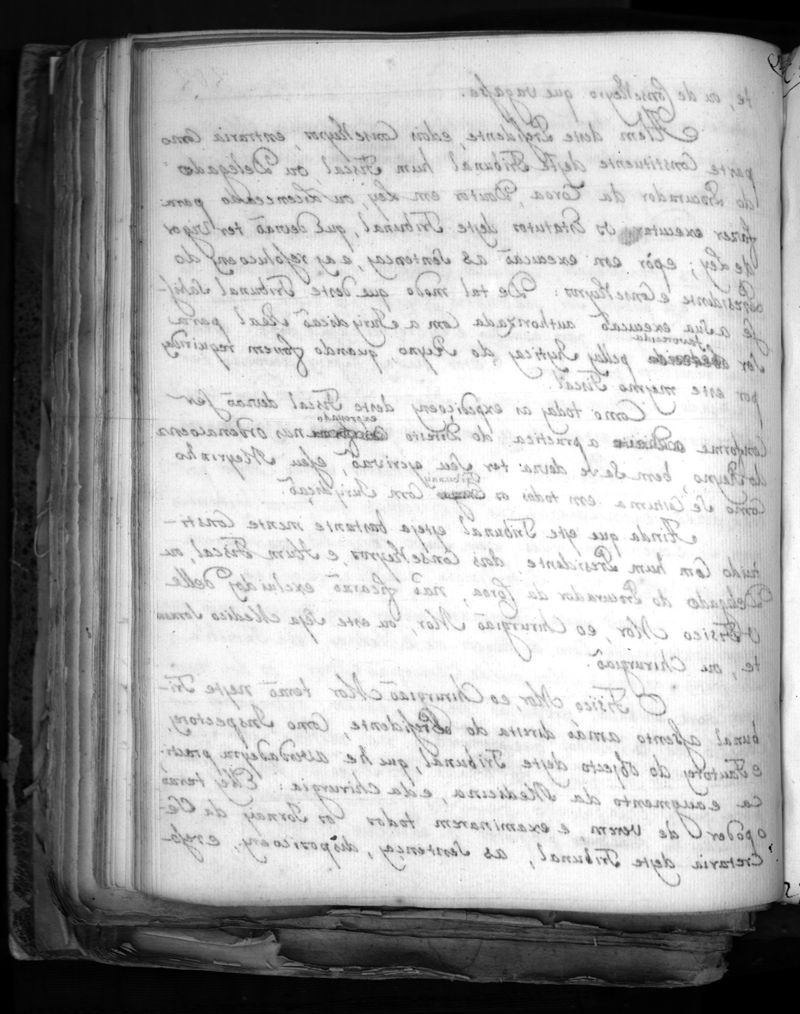 te, ou de Conselheyro que vagasse.
Alem deste Presidente, e dois Conselheyros, entraria como
parte Constituente deste Tribunal hum Fiscal, ou Delegado
do Procurador da Coroa, Doutor em Ley, ou Licenceado para
fazer executar os Estatutos deste Tribunal, que devnaõ ter vigor
de Ley; epòr em execuçaõ as Sentenças, e as resoluçoens do
Presidente e Conselheyros: De tal modo que deste Tribunal sahis-
se a sua execuçaõ authorizada Com a Jurisdiçaõ Real para
ser favorecida pellas Justiças do Reyno, quando fossem requiridas
por este mesmo Fiscal.
Como todas as expediçoens deste Fiscal devnaõ ser
Conforme a practica do Direito expressado nas ordenaçoens
do Reyno, bem Seve devna ter seu escrivaõ, eseu Meyrinho
como se Custuma em todos os Tribunais Com Jurisdiçaõ
Ainda que este Tribunal esteja bastantemente Consti-
tuido Com hum Presidente, dois Conselheyros, e Hum Fiscal, ou
Delegado do Procurador da Coroa, naõ ficaraõ excluidos delle
o Fisico Mor, eo Chirurgiaõ Mor, ou este seja Medico somen
te, ou Chirurgiaõ.
O Fisico Mor, eo Chirurgiaõ Mor teraõ neste Tri-
bunal assento amaõ direita do Presidente, Como Inspectores,
e Fautores do objecto deste Tribunal, que he averdadeyra practi-
ca e augmento da Medicina, e da Chirurgia: Elles teraõ
o poder de verem, e examinarem todos os Jornays da Se-
cretaria deste Tribunal, as Sentenças, disposiçoens, eresso-